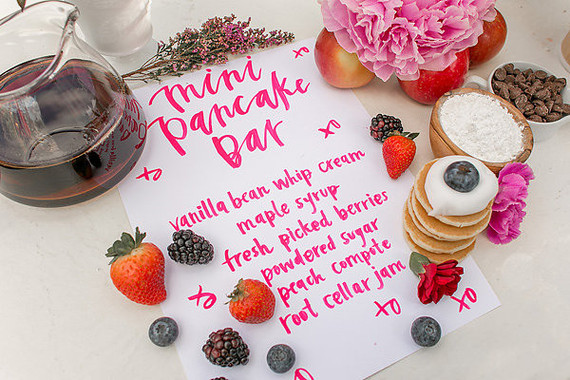 mini
pancake
bar
vanilla bean whip cream
maple syrup
fresh picked berries
powdered sugar
peach compote
root cellar jam
xo
xo
xo
xo
xo
xo
xo